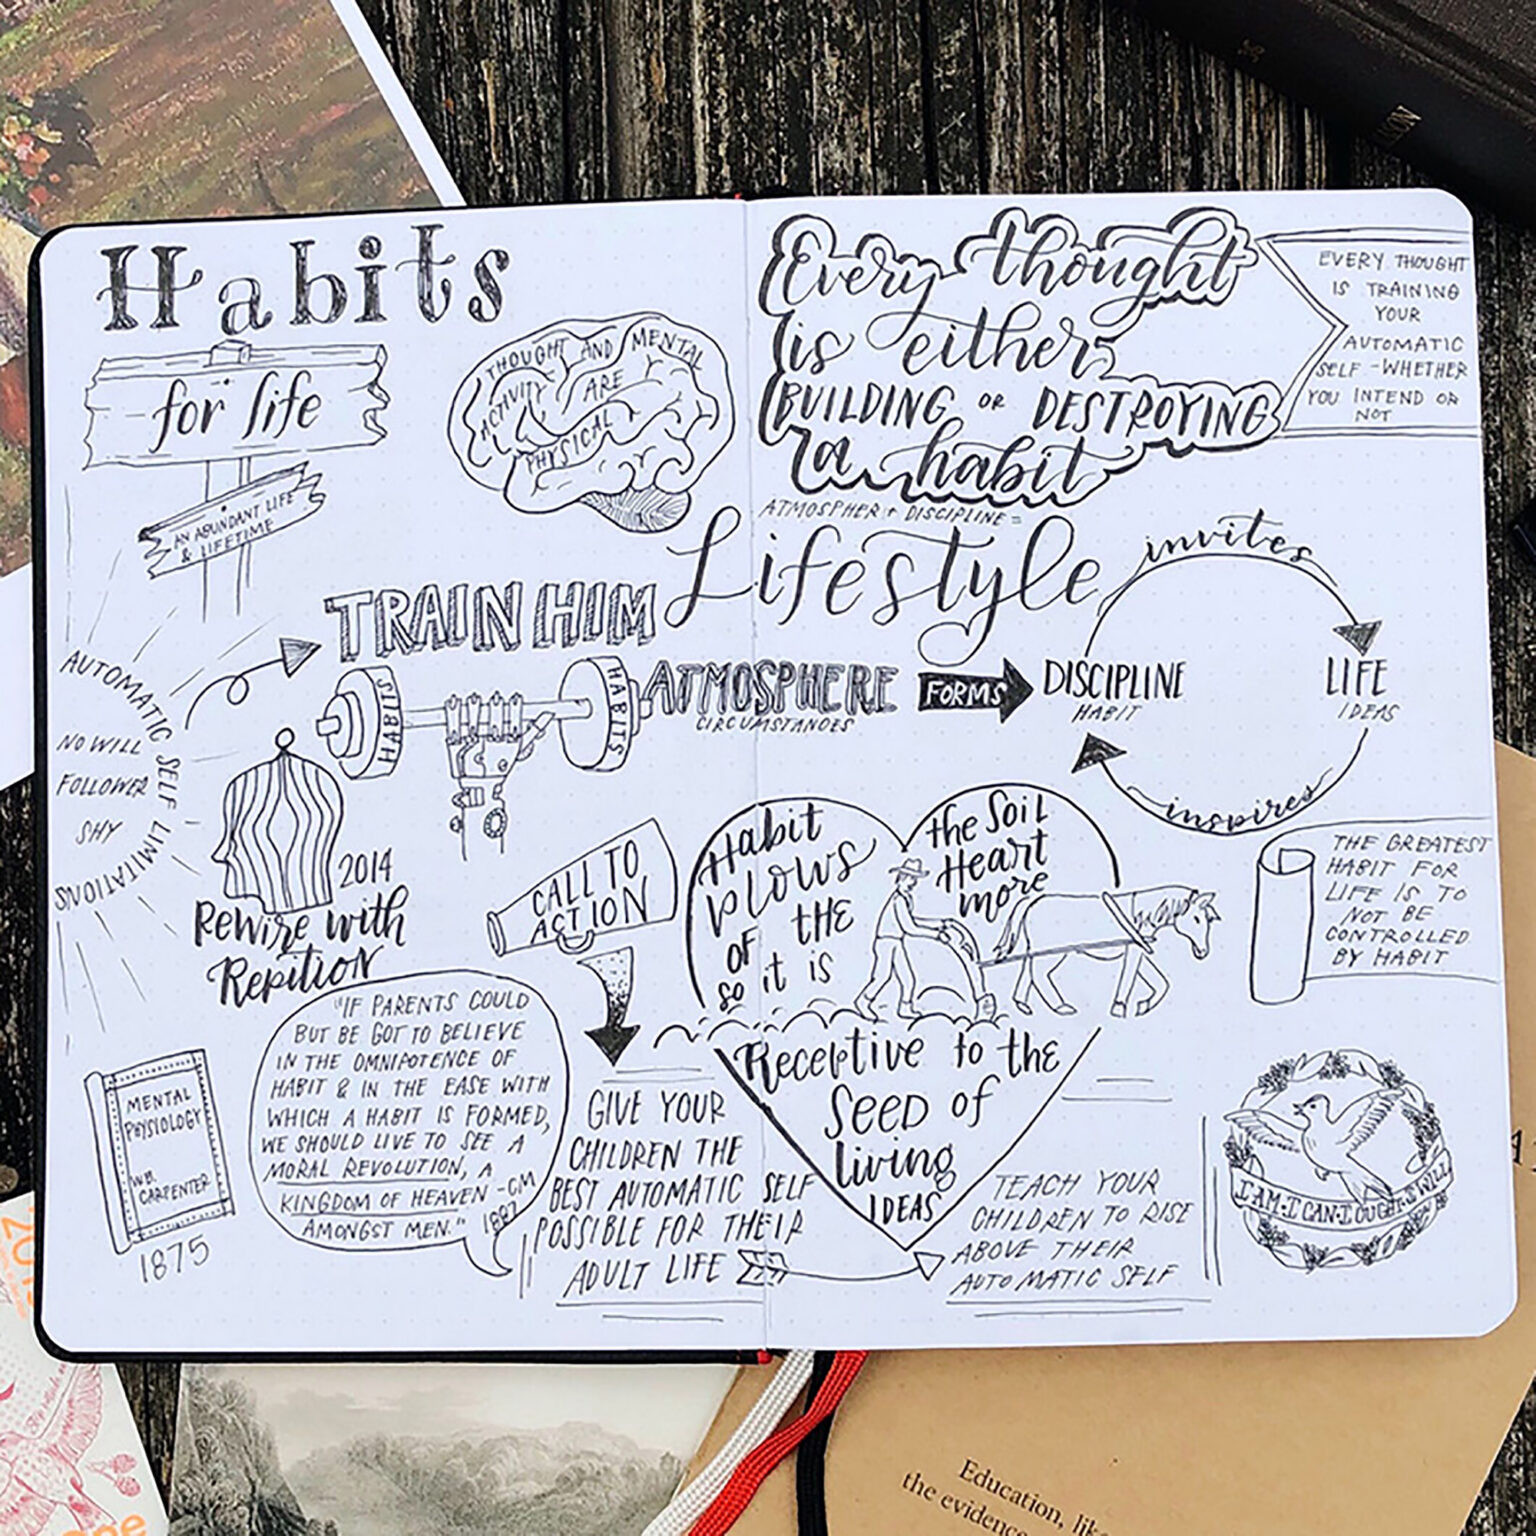 Habits
for life
AN ABUNDANT LIFE
& LIFETIME
THOUGHT AND MENTAL
ACTIVITY ARE
PHYSICAL
Every thought
is either
BUILDING OR DESTROYING
a habit
EVERY THOUGHT
IS TRAINING
YOUR
AUTOMATIC
SELF - WHETHER
YOU INTEND OR
NOT
ATMOSPHER + DISCIPLINE =
Lifestyle
TRAIN HIM
HABITS
HABITS
ATMOSPHERE
CIRCUMSTANCES
FORMS
DISCIPLINE
HABIT
invites
LIFE
IDEAS
inspires
AUTOMATIC SELF LIMITATIONS
NO WILL
FOLLOWER
SHY
2014
Rewire with
Repition
CALL TO
ACTION
Habit
plows
the
of
so it is
the Soil
Heart
more
Receptive to the
Seed of
living
IDEAS
THE GREATEST
HABIT FOR
LIFE IS TO
NOT BE
CONTROLLED
BY HABIT
"IF PARENTS COULD
BUT BE GOT TO BELIEVE
IN THE OMNIPOTENCE OF
HABIT & IN THE EASE WITH
WHICH A HABIT IS FORMED,
WE SHOULD LIVE TO SEE A
MORAL REVOLUTION, A
KINGDOM OF HEAVEN -CM
AMONGST MEN." 1887
MENTAL
PHYSIOLOGY
WB.
CARPENTER
1875
GIVE YOUR
CHILDREN THE
BEST AUTOMATIC SELF
POSSIBLE FOR THEIR
ADULT LIFE
TEACH YOUR
CHILDREN TO RISE
ABOVE THEIR
AUTOMATIC SELF
I AM·I CAN·I OUGHT·I WILL
Education, like
the evidence